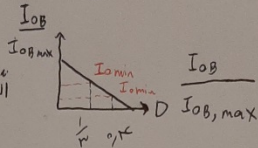 I_OB
I_OB max
I_omin
I_omin
D
1/3
۰,۴
I_OB / I_OB, max